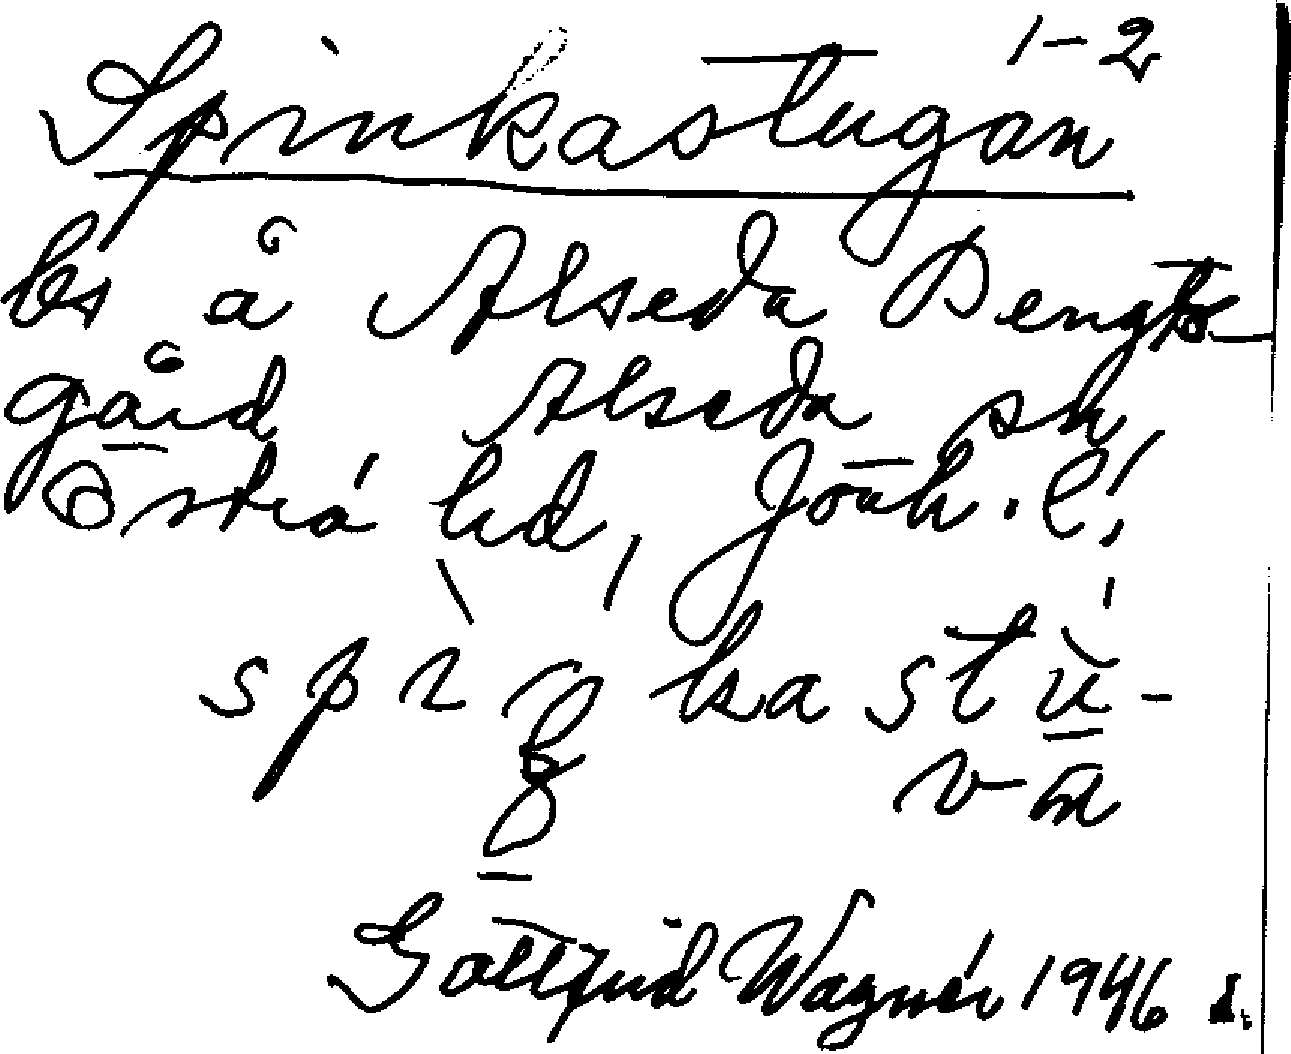 1-2
Spinkastugan
bs å Alseda Bengts-
gård Alseda sn
Östra hd, Jönk. l.
Gottfrid Wagnér 1946